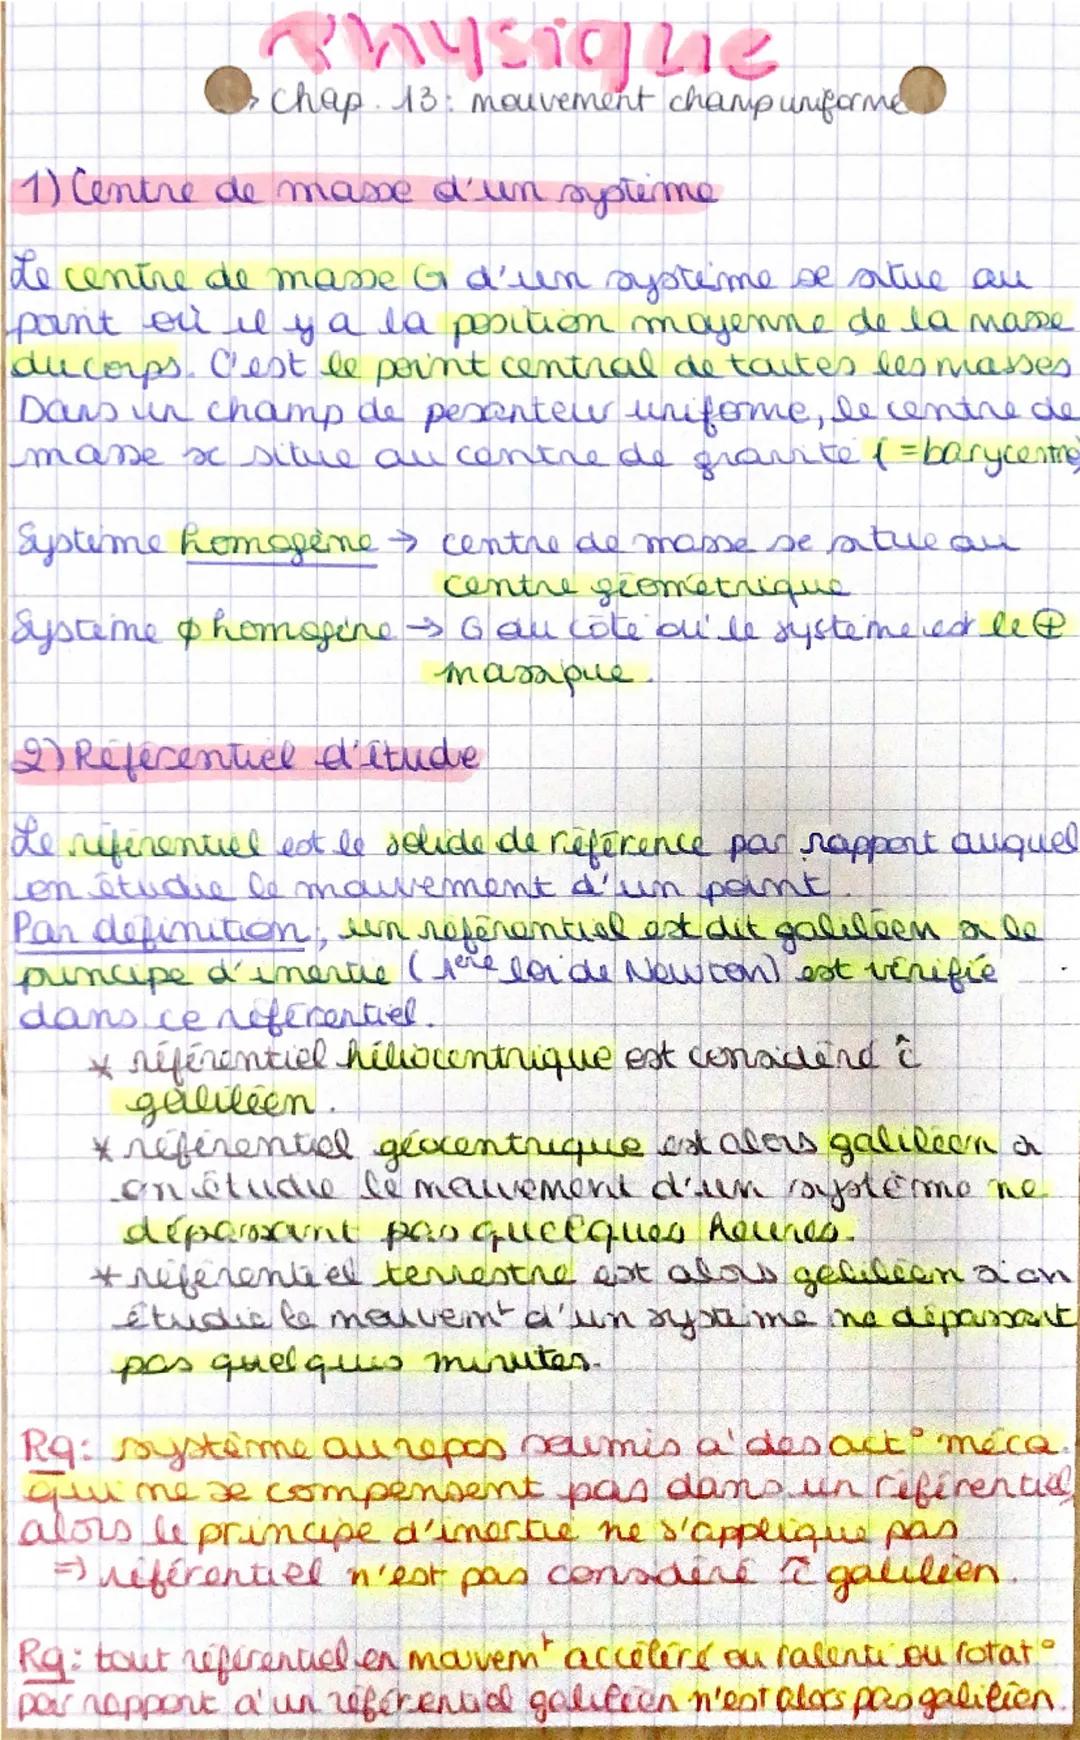 Physique
→ chap. 13: mouvement champ uniforme
1) Centre de masse d'un système
Le centre de masse G d'un système se situe au
point où il y a la position moyenne de la masse
du corps. C'est le point central de toutes les masses
Dans un champ de pesanteur uniforme, le centre de
masse se situe au centre de gravité (=barycentre)
Système homogène → centre de masse se situe au
centre géométrique
Système φ homogène → G au côté où le système est le ⊕
massique.
2) Référentiel d'étude
Le référentiel est le solide de référence par rapport auquel
on étudie le mouvement d'un point.
Par définition, un référentiel est dit galiléen si le
principe d'inertie (1ère loi de Newton) est vérifié
dans ce référentiel.
* référentiel héliocentrique est considéré ĉ
galiléen.
* référentiel géocentrique est alors galiléen si
on étudie le mouvement d'un système ne
dépassant pas quelques heures.
* référentiel terrestre est alors galiléen si on
étudie le mouvemt d'un système ne dépassant
pas quelques minutes.
Rq: système au repos soumis à des act° méca.
qui ne se compensent pas dans un référentiel,
alors le principe d'inertie ne s'applique pas
=> référentiel n'est pas considéré ĉ galiléen.
Rq: tout référentiel en mouvemt accéléré ou ralenti ou rotat°
par rapport à un référentiel galiléen n'est alors pas galiléen.